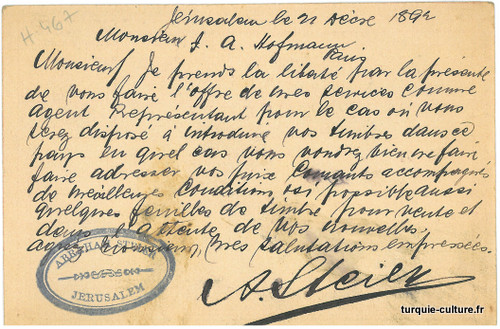 H 467
Jérusalem le 21 Décbre 1892
Monsieur J. A. Hofmann
Paris
Monsieur! Je prends la liberté par la présente
de vous faire l'offre de mes services comme
agent Représentant pour le cas où vous
serez disposé à introduire vos timbres dans ce
pays en quel cas vous voudrez bien me faire
faire adresser vos prix Courants accompagnés
de meilleures Conditions, si possible aussi
quelques feuilles de timbre pour vente et
dans l'attente de vos nouvelles,
agréez Monsieur, mes salutations empressées.
ABRAHAM STEIN
JERUSALEM
A. Stein
turquie-culture.fr